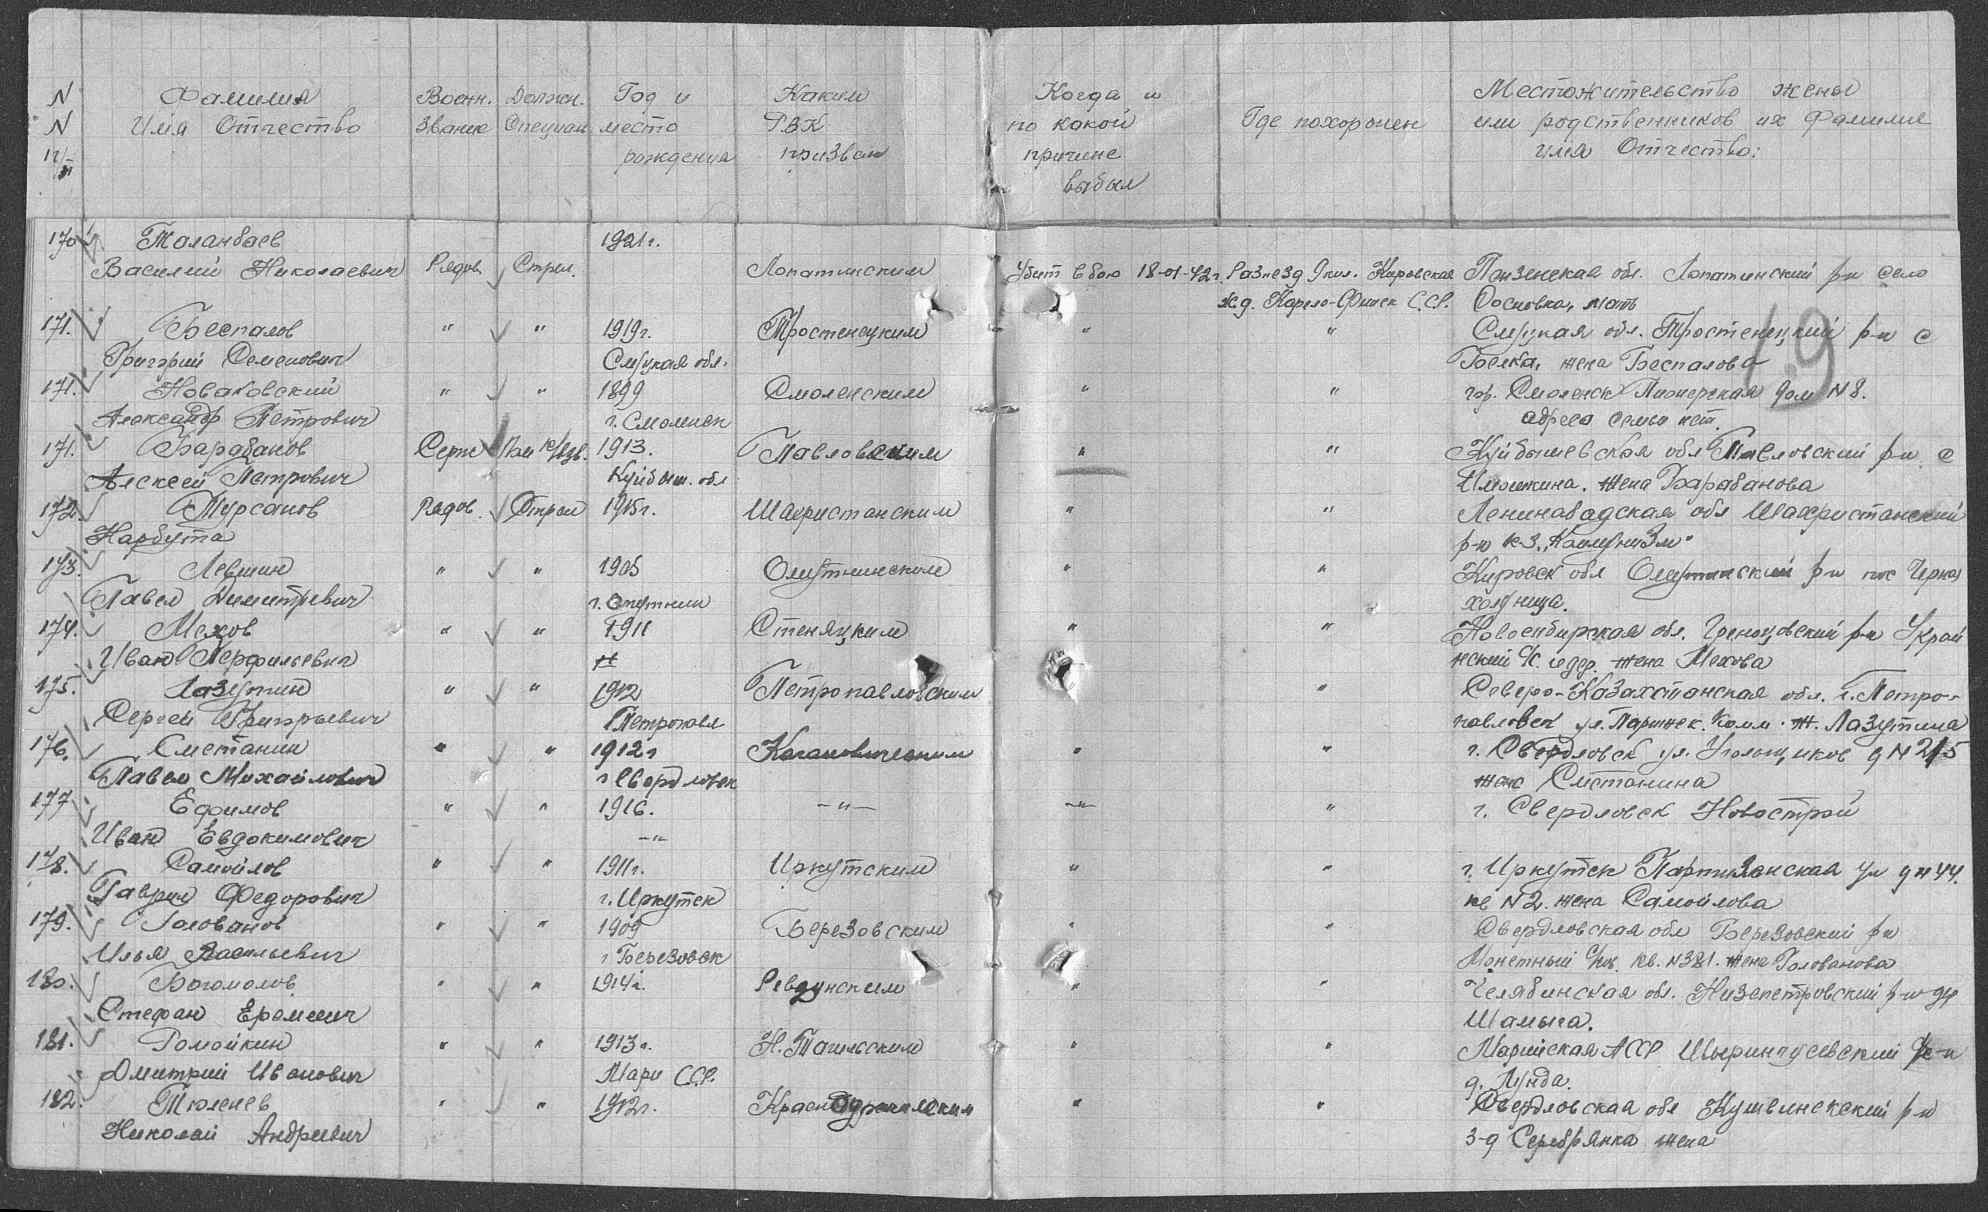 N
N
п/п
Фамилия
Имя Отчество
Воен.
Звание
Должн.
Специал
Год и
место
рождения
Каким
РВК
призван
Когда и
по какой
причине
выбыл
Где похоронен
Местожительство жены
или родственников их Фамилия
имя Отчество:
170 Таланбаев 1921г.
Василий Николаевич Рядов. Стрел. Лопатинским Убит в бою 18-01-42г. Разъезд 9 км. Кировская Пензенская обл. Лопатинский р-н село
ж.д. Карело-Финск С.С.Р. Сосновка, мать
171. Беспалов " " 1919г. Тростенецким " " Сумская обл. Тростенецкий р-н с
Григорий Семенович Сумская обл. Белка, жена Беспалова
171. Новаковский " " 1899 Смоленским " " гор. Смоленск Пионерская дом N 8.
Александр Петрович г. Смоленск адреса семьи нет.
171. Барабанов Серж Пом к/взв. 1913. Павловским " " Куйбышевская обл Павловский р-н с
Алексей Петрович Куйбыш. обл жена Барабанова
172. Турсанов Рядов. Стрел 1915г. Шахристанским " " Ленинабадская обл Шахристанский
Нарбута р-н к-з „Коммунизм"
173. Левшин " " 1905 Омутнинским " " Кировск обл Омутнинский р-н пос Черная
Павел Димитревич г. Омутнин холуница.
174. Мехов " " 1911 Стеняцким " " Новосибирская обл. р-н Украи
Иван Перфильевич нский с/с жена Мехова
175. Лазутин " " 1912 Петропавловским " Северо-Казахстанская обл. г. Петро-
Сергей Григорьевич Петропавл павловск ул. Парижск. Комм. ж. Лазутина
176. Сметанин " " 1912г Кагановическим " " г. Свердловск ул. Угольщиков д N 215
Павел Михайлович г Свердловск жена Сметанина
177 Ефимов " " 1916. –"– –"– " г. Свердловск Новострой
Иван Евдокимович –"–
178. Самойлов " " 1911г. Иркутским " " г. Иркутск Партизанская ул д N 44.
Гаврил Федорович г. Иркутск кв N 2. жена Самойлова
179. Голованов " " 1909 Березовским " " Свердловская обл Березовский р-н
Илья Васильевич г Березовск Монетный кв. N 381. жена Голованова
180. Богомолов " " 1914г. Ревдунским " " Челябинская обл. Нязепетровский р-н др
Стефан Еремеич Шамыга.
181. Ромойкин " " 1913г. Н. Тагильским " " Марийская АССР р-н
Дмитрий Иванович Мари С.С.Р. д. Лунда.
182. Тюленев " " 1912г. Красноуральским " " Свердловская обл Кушвинекский р-н
Николай Андреевич з-д Серебрянка жена
19